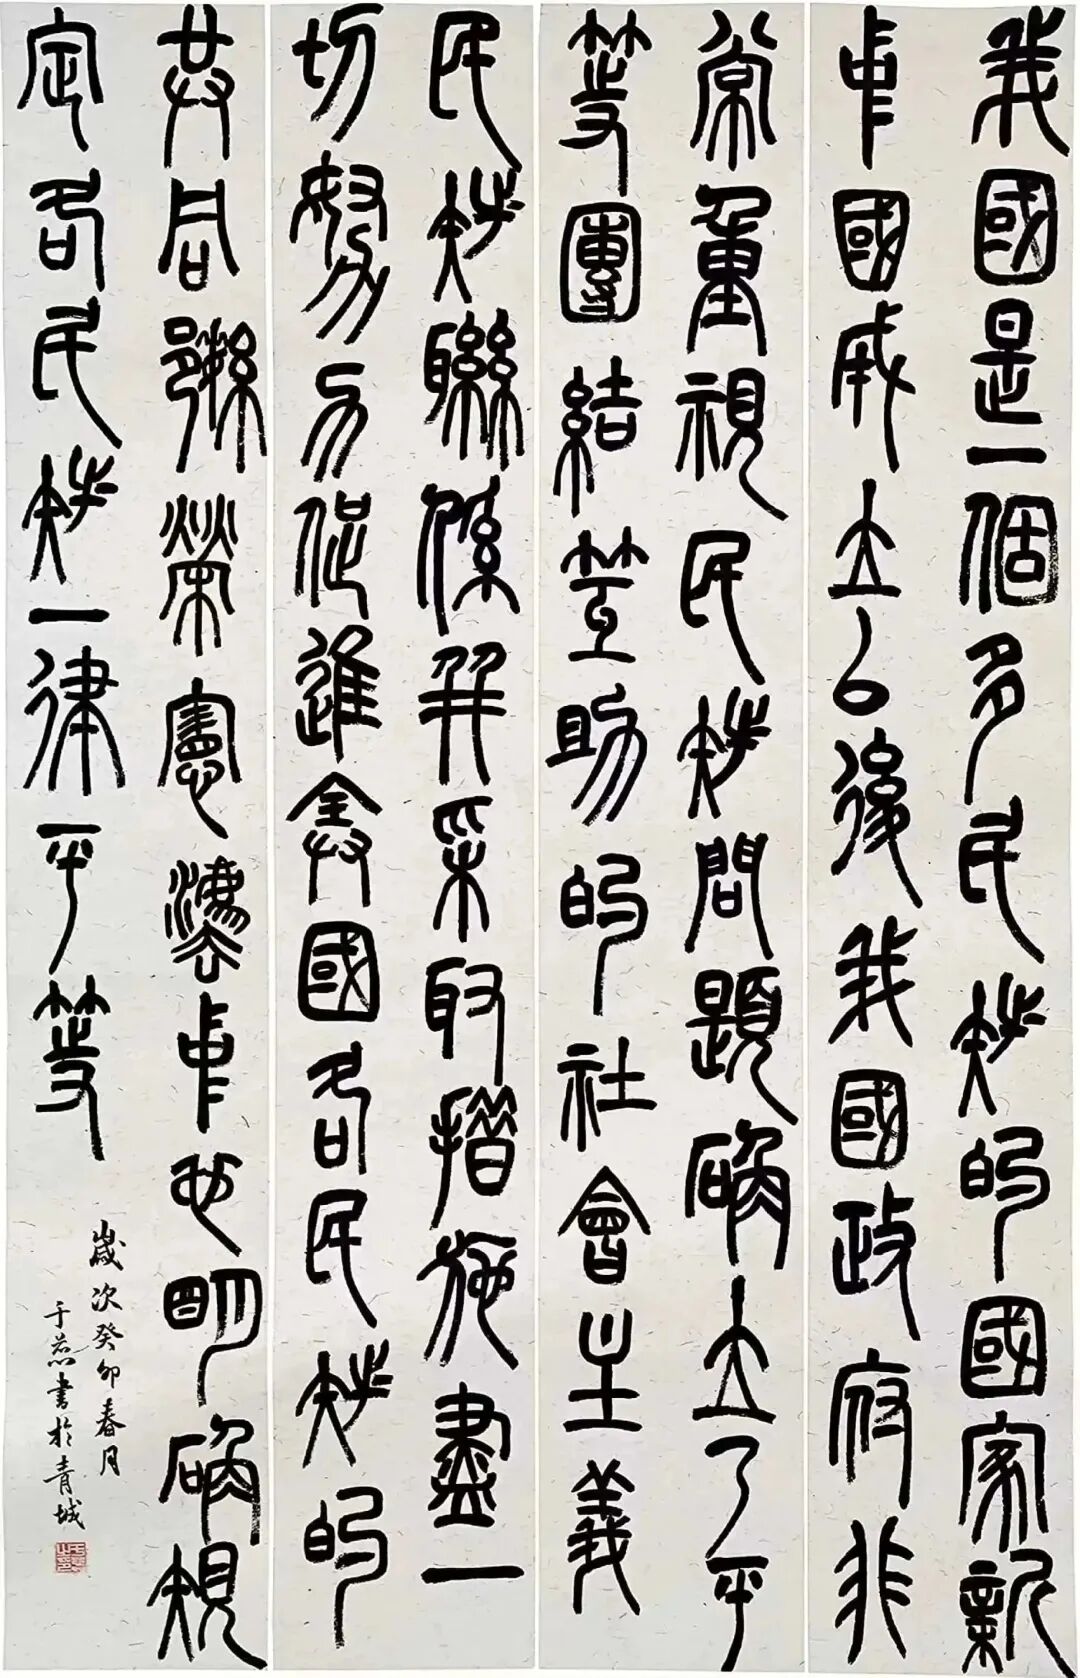 我國是一個多民族的國家新
中國成立以後我國政府非
常重視民族問題確立了平
等團結互助的社會主義
民族聯係并采取措施盡一
切努力促進全國各民族的
共同繁榮憲法中也明確規
定各民族一律平等
歲次癸卯春月
于燕書於青城